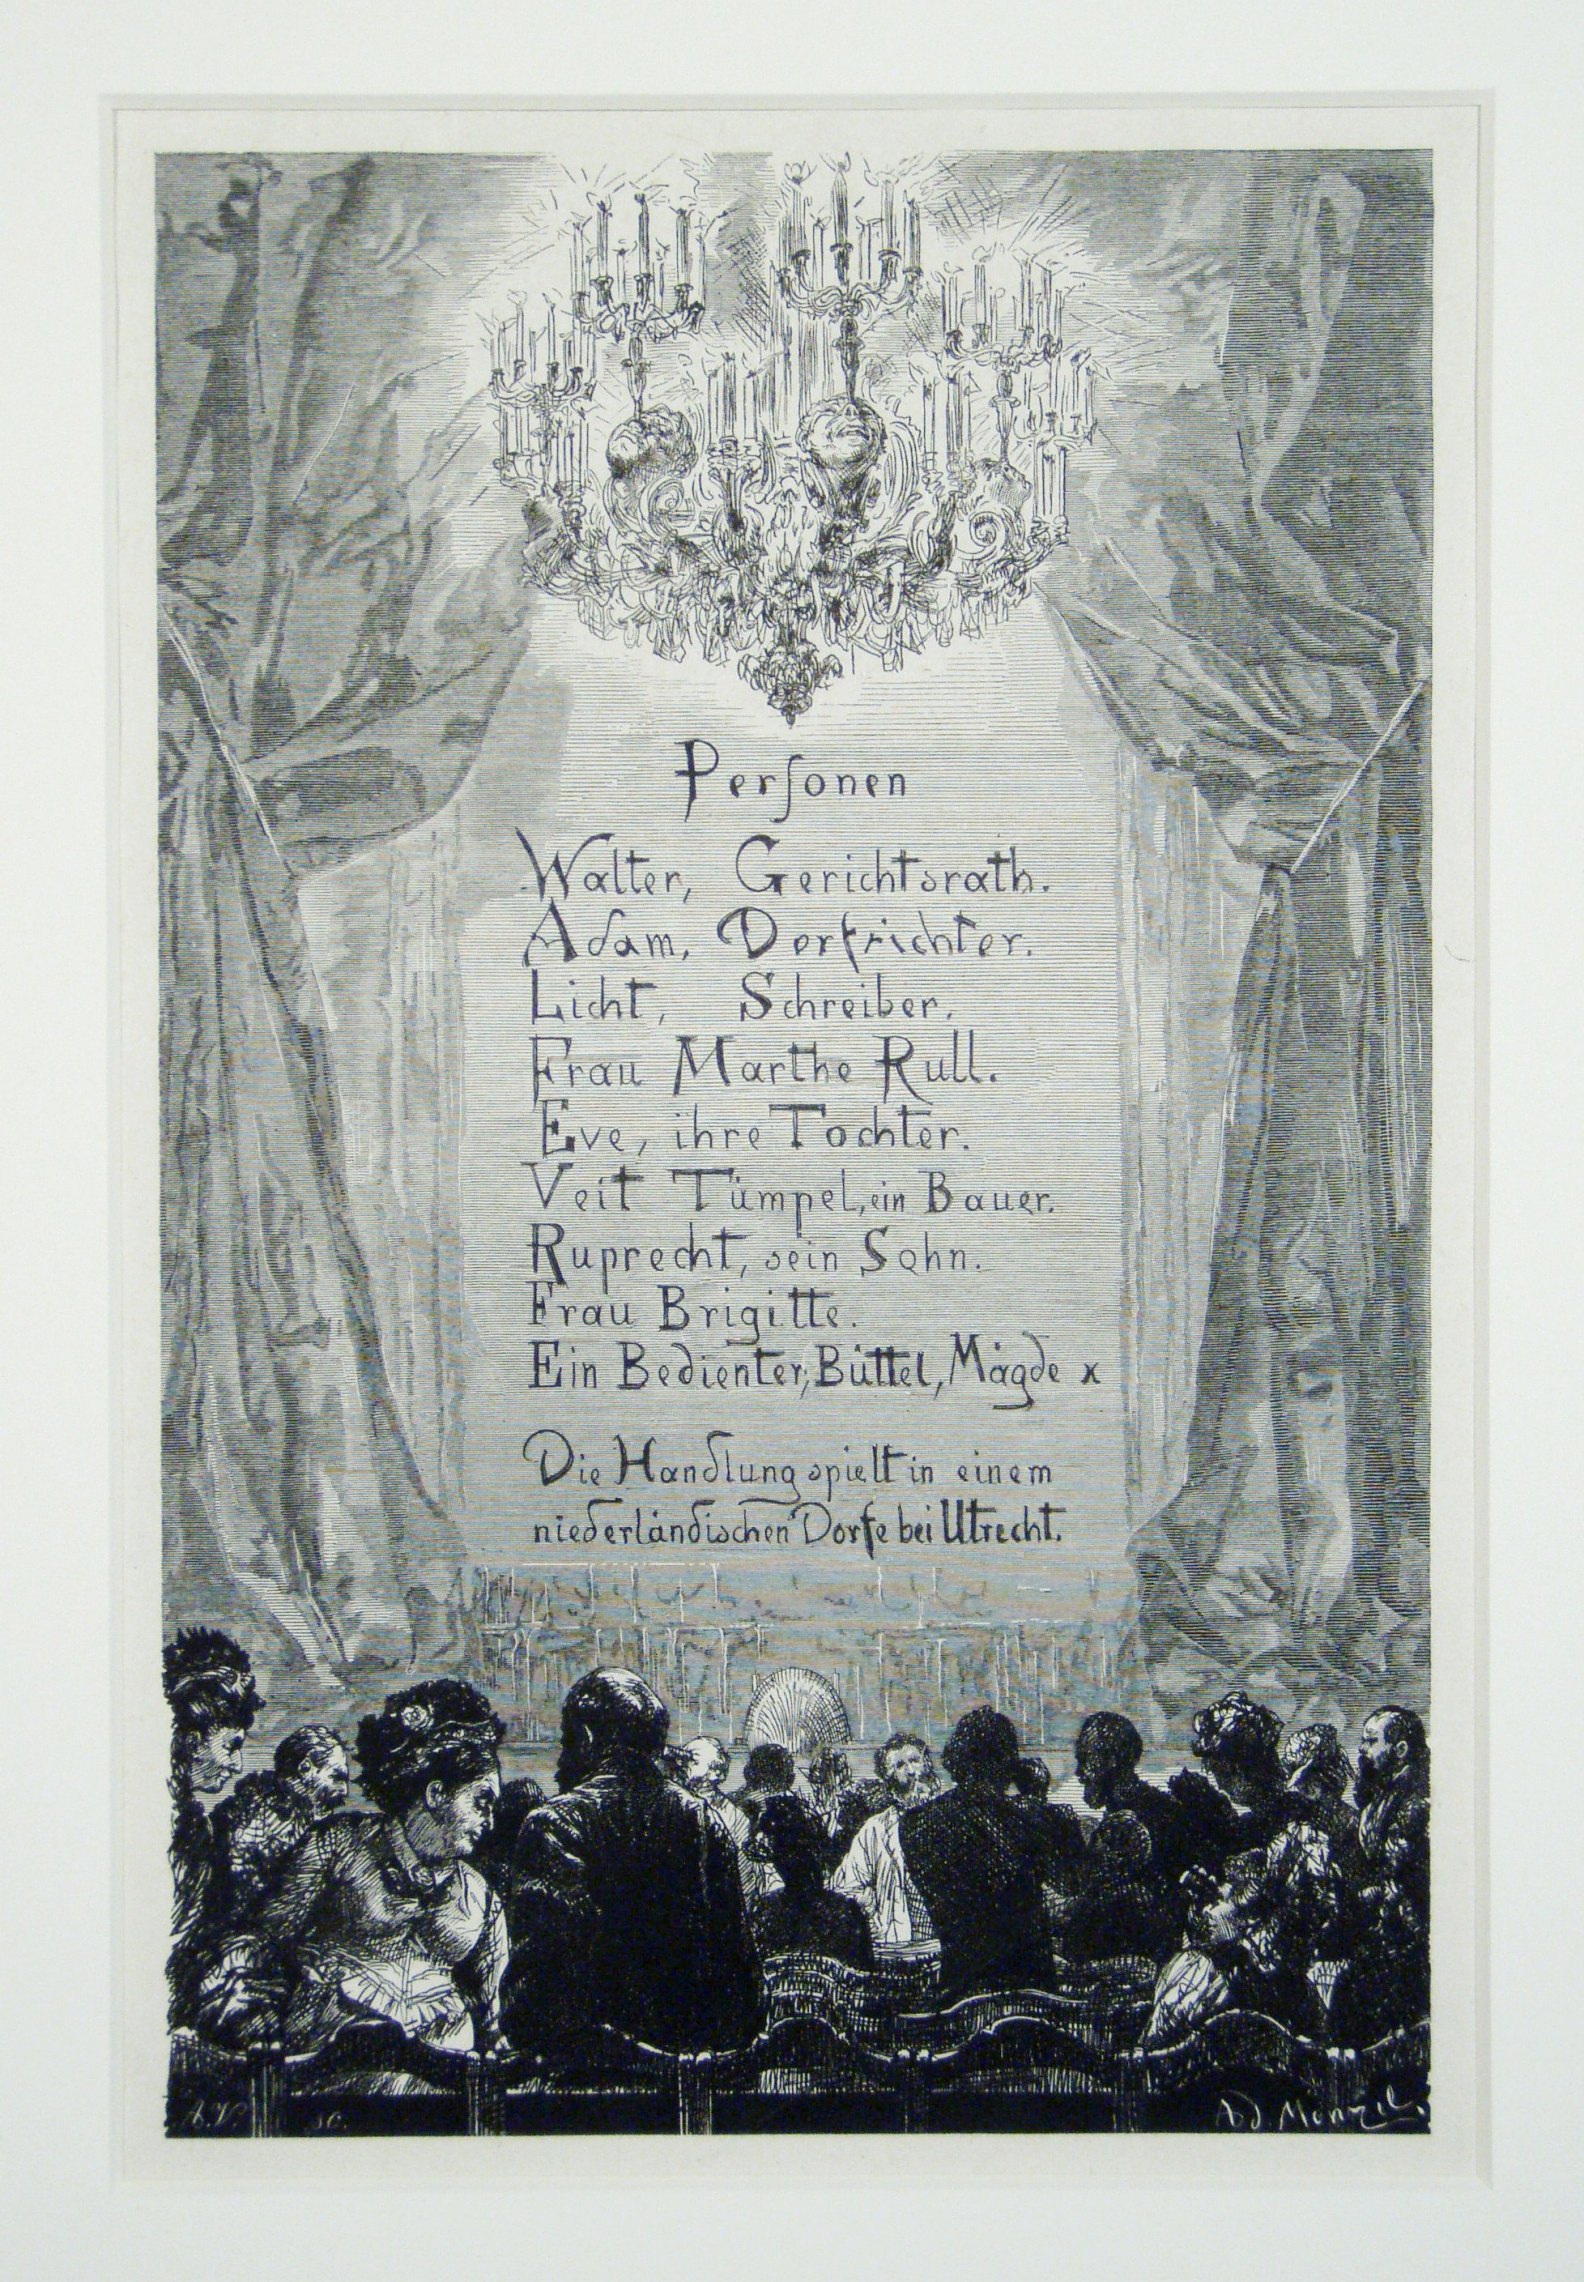 Perſonen
Walter, Gerichtsrath.
Adam, Dorfrichter.
Licht, Schreiber.
Frau Marthe Rull.
Eve, ihre Tochter.
Veit Tümpel, ein Bauer.
Ruprecht, sein Sohn.
Frau Brigitte.
Ein Bedienter, Büttel, Mägde x
Die Handlung spielt in einem
niederländischen Dorfe bei Utrecht.
Ad. Menzel.